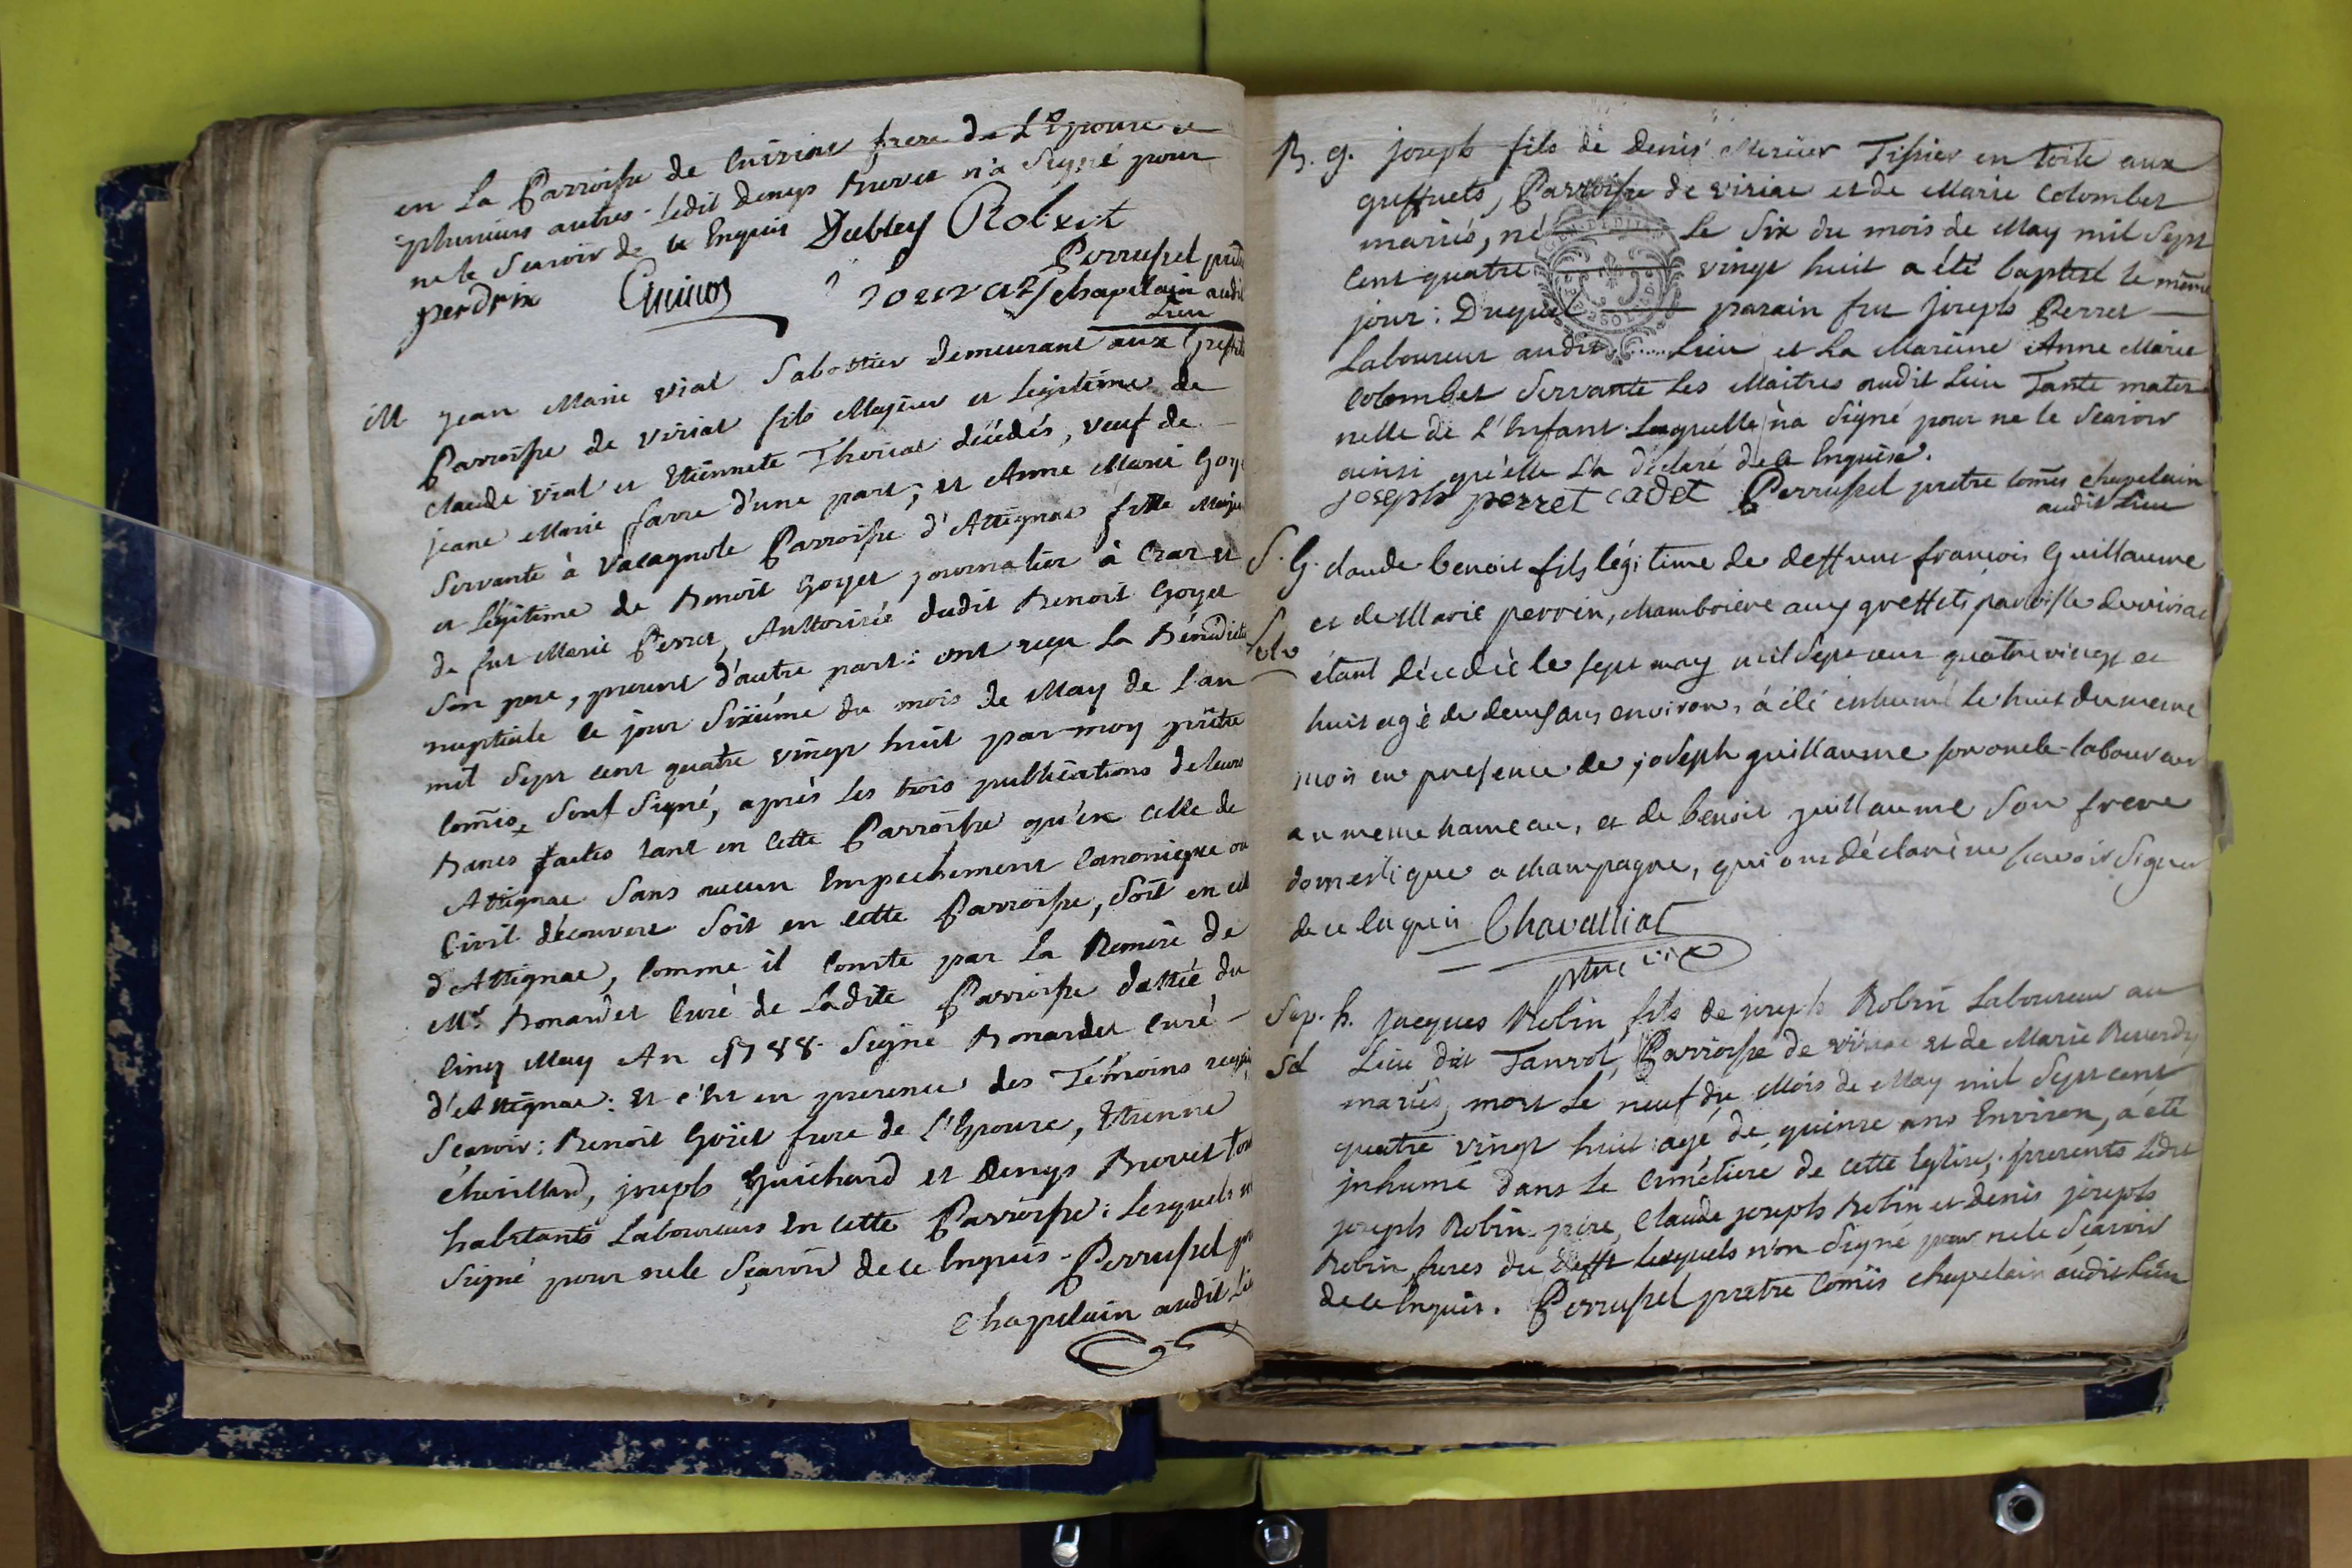 en La Parroisse de Cuisiat frere de L'Epouse et
plusieurs autres. Ledit Denys Brevet n'a Signé pour
ne le Scavoir de ce Enquis Dubley Robert
perdrix Perrussel prêtre
Chapelain audit
Lieu
M Jean Marie Vial Sabottier demeurant aux Greffets
Parroisse de Viriat fils Majeur et Légitime de
Claude Vial et Etiennete Thevial décédés, veuf de
jeane Marie favre d'une part; et Anne Marie Goyet
Servante à Vacagnole Parroisse d'Attignat fille Majeure
et Légitime de Benoit Goyet journalier à Cras et
de fut Marie Perret, Authorisée dudit Benoit Goyet
Son pere, present d'autre part: ont reçu La Bénédiction
nuptiale ce jour Sixiéme du mois de May de L'an
mil Sept cent quatre vingt huit par moy prêtre
Commis Sous Signé, après Les trois publications de leurs
Banes faites tant en Cette Parroisse qu'en Celle de
Attignac Sans aucun Empechement Canonique ou
Civil découvert Soit en Cette Parroisse, Soit en celle
d'Attignac, Comme il Conste par La Remise de
Mr Bonardet Curé de Ladite Parroisse dattée du
Cinq May An 1788. Signé Bonardet Curé
d'Attignac: et c'est en presence des Témoins requis
Scavoir: Benoit Goÿet frere de L'Epouse, Etienne
Chevillard, joseph Guichard et Denys Brevet tous
habitants Laboureurs En Cette Parroisse: Lesquels n'ont
Signé pour ne le Sçavoir de ce Enquis - Perrussel prêtre
Chapelain audit Lieu
B. g. joseph fils de Denis Mercier Tissier en toile aux
greffets, Parroisse de viriac et de Marie Colombet
mariés, né Le Six du mois de May mil Sept
Cent quatre vingt huit a été baptisé le même
jour: Duquel parain fut joseph Perret
Laboureur audit Lieu et La Mareine Anne Marie
Colombet Servante Les Maitres audit Lieu Tante mater
nelle de L'Enfant. Laquelle n'a Signé pour ne le Scavoir
ainsi qu'elle L'a déclaré de ce Enquise.
joseph perret cadet Perrussel pretre Comis chapelain
audit Lieu
S. G. claude benoit fils légitime de deffunt françois Guillaume
et de Marie perrin, chamboiere aux greffets parroisse de viriac
étant décedé le sept may mil Sept cent quatre vingt et
huit agé de deux ans environ, a été inhumé le huit du meme
mois en presence de joseph guillaume son oncle laboureur
au meme hameau, et de benoit guillaume Son frere
domestique a champagne, qui ont déclaré ne scavoir Signer
de ce enquis Chavalliat
ptre
Sep. h. Jacques Robin fils de joseph Robin Laboureur au
Sd Lieu dit Tanvol, Parroisse de viriac et de Marie Reverdy
mariés, mort Le neuf du Mois de May mil Sept cent
quatre vingt huit agé de quinze ans Environ, a été
jnhumé dans Le Cimétiere de cette Eglise; presents Ledit
joseph Robin pere, Claude joseph Robin et denis joseph
Robin freres du Defft Lesquels n'on Signé pour ne le Sçavoir
de ce Enquis. Perrussel pretre Comis chapelain audit Lieu